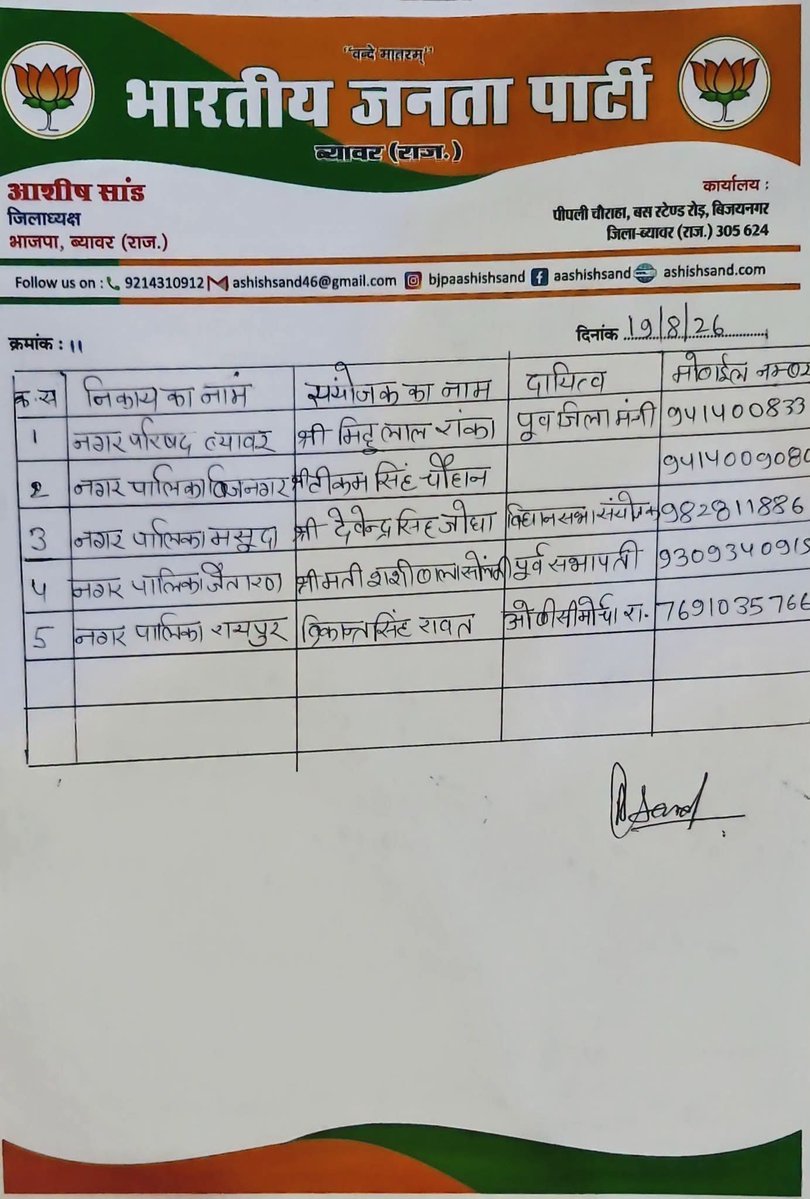 "वन्दे मातरम्"
भारतीय जनता पार्टी
ब्यावर (राज.)
आशीष सांड
जिलाध्यक्ष
भाजपा, ब्यावर (राज.)
कार्यालय :
पीपली चौराहा, बस स्टेण्ड रोड़, बिजयनगर
जिला-ब्यावर (राज.) 305 624
Follow us on : 9214310912 ashishsand46@gmail.com bjpaashishsand aashishsand ashishsand.com
क्रमांक : 11
दिनांक 19/8/26
क्र.स निकाय का नाम संयोजक का नाम दायित्व मोबाईल नम्बर
1 नगर परिषद ब्यावर श्री मिट्ठू लाल रांका पूर्व जिला मंत्री 941400833
2 नगर पालिका बिजनगर श्री टीकम सिंह चौहान 9414009080
3 नगर पालिका मसूदा श्री देवेन्द्र सिंह जोधा विधानसभा संयोजक 982811886
4 नगर पालिका जैतारण श्रीमती शशीबाला सोलंकी पूर्व सभापती 930934091
5 नगर पालिका रायपुर विक्रान्त सिंह रावत ओबीसी मोर्चा रा. 7691035766